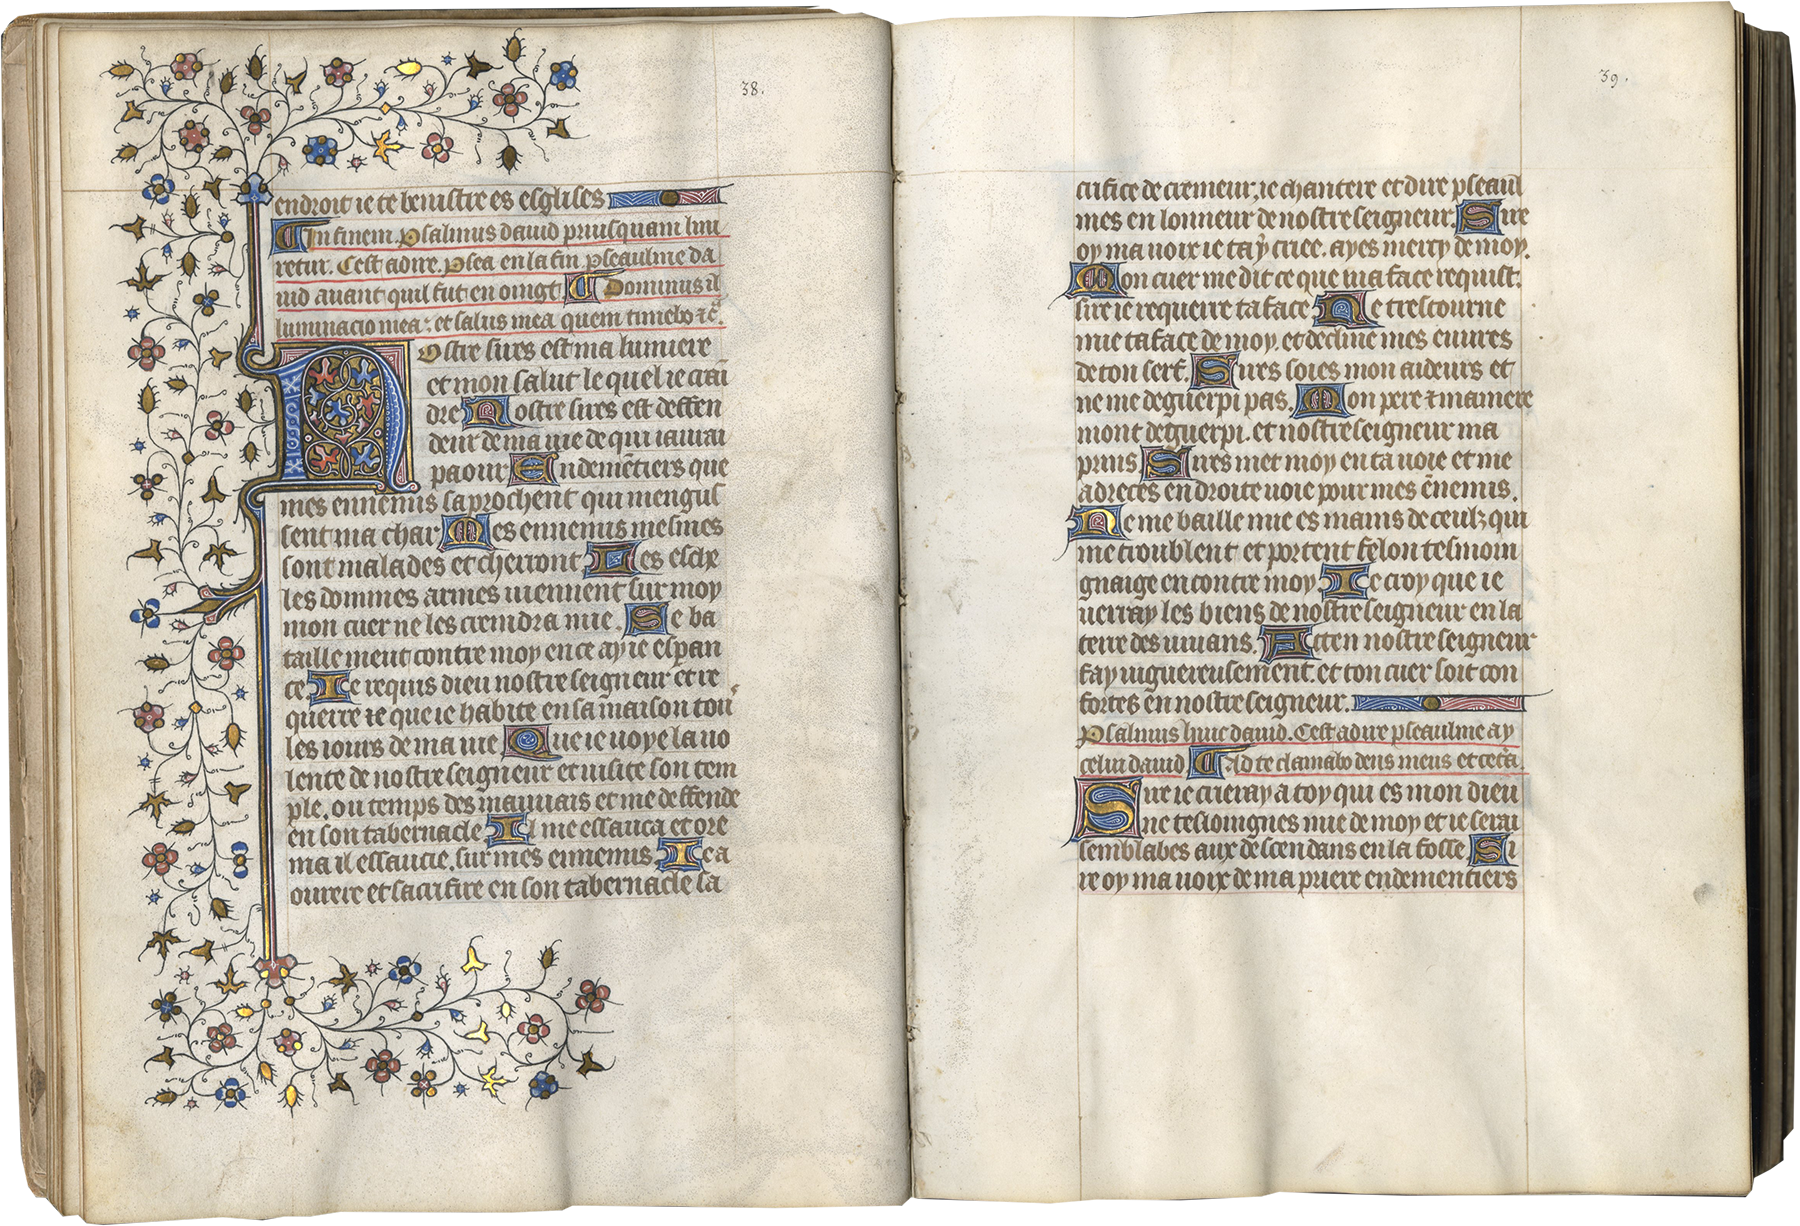 38.
endroit ie te benistre es esglises
In finem. psalmus dauid priusquam lini
retur. Cest adire. psea en la fin pseaulme da
uid auant quil fut en oingt Dominus il
luminacio mea: et salus mea quem timebo ⁊c̃.
Nostre sires est ma lumiere
et mon salut le quel ie crai
dre Nostre sires est deffen
deur de ma uie de qui iaurai
paour Endemẽtiers que
mes ennemis saprochent qui mengus
sent ma char Mes ennemis mesmes
sont malades et cherront Les esche
les dommes armes uiennent sur moy
mon cuer ne les creindra mie. Se ba
taille meut contre moy en ce ay ie espan
ce Ie requis dieu nostre seigneur et re
querre ⁊e que ie habite en sa maison tou
les iours de ma uie Que ie uoye la uo
lente de nostre seigneur et uisite son tem
ple. ou temps des mauuais et me deffende
en son tabernacle Il me essauca et ore
ma il essaucie. sur mes ennemis. Ie a
ourere et sacrifire en son tabernacle sa
39.
crifice de cremeur; ie chantere et dire pseaul
mes en lonneur de nostre seigneur. Sire
oy ma uoix ie tay criee. ayes mercy de moy.
Mon cuer me dit ce que ma face requist.
sire ie requerre ta face Ne trestourne
mie ta face de moy. et decline mes euures
de ton serf. Sires soies mon aideurs et
ne me deguerpi pas. Mon pere ⁊ ma mere
mont deguerpi. et nostre seigneur ma
prins Sires met moy en ta uoie et me
adreces en droite uoie pour mes ẽnemis.
Ne me baille mie es mains de ceulz qui
me troublent et portent felon tesmoin
gnaige en contre moy Ie croy que ie
uerray les biens de nostre seigneur en la
terre des uiuans. Atten nostre seigneur
fay uiguereusement. et ton cuer soit con
fortes en nostre seigneur.
Psalmus huic dauid. Cest adire pseaulme ay
celui dauid Ad te clamabo deus meus et cetã.
Sire ie crieray a toy qui es mon dieu
ne tesloingnes mie de moy et ie serai
semblabes aux descendans en la fosse. Si
re oy ma uoix de ma priere endementiers